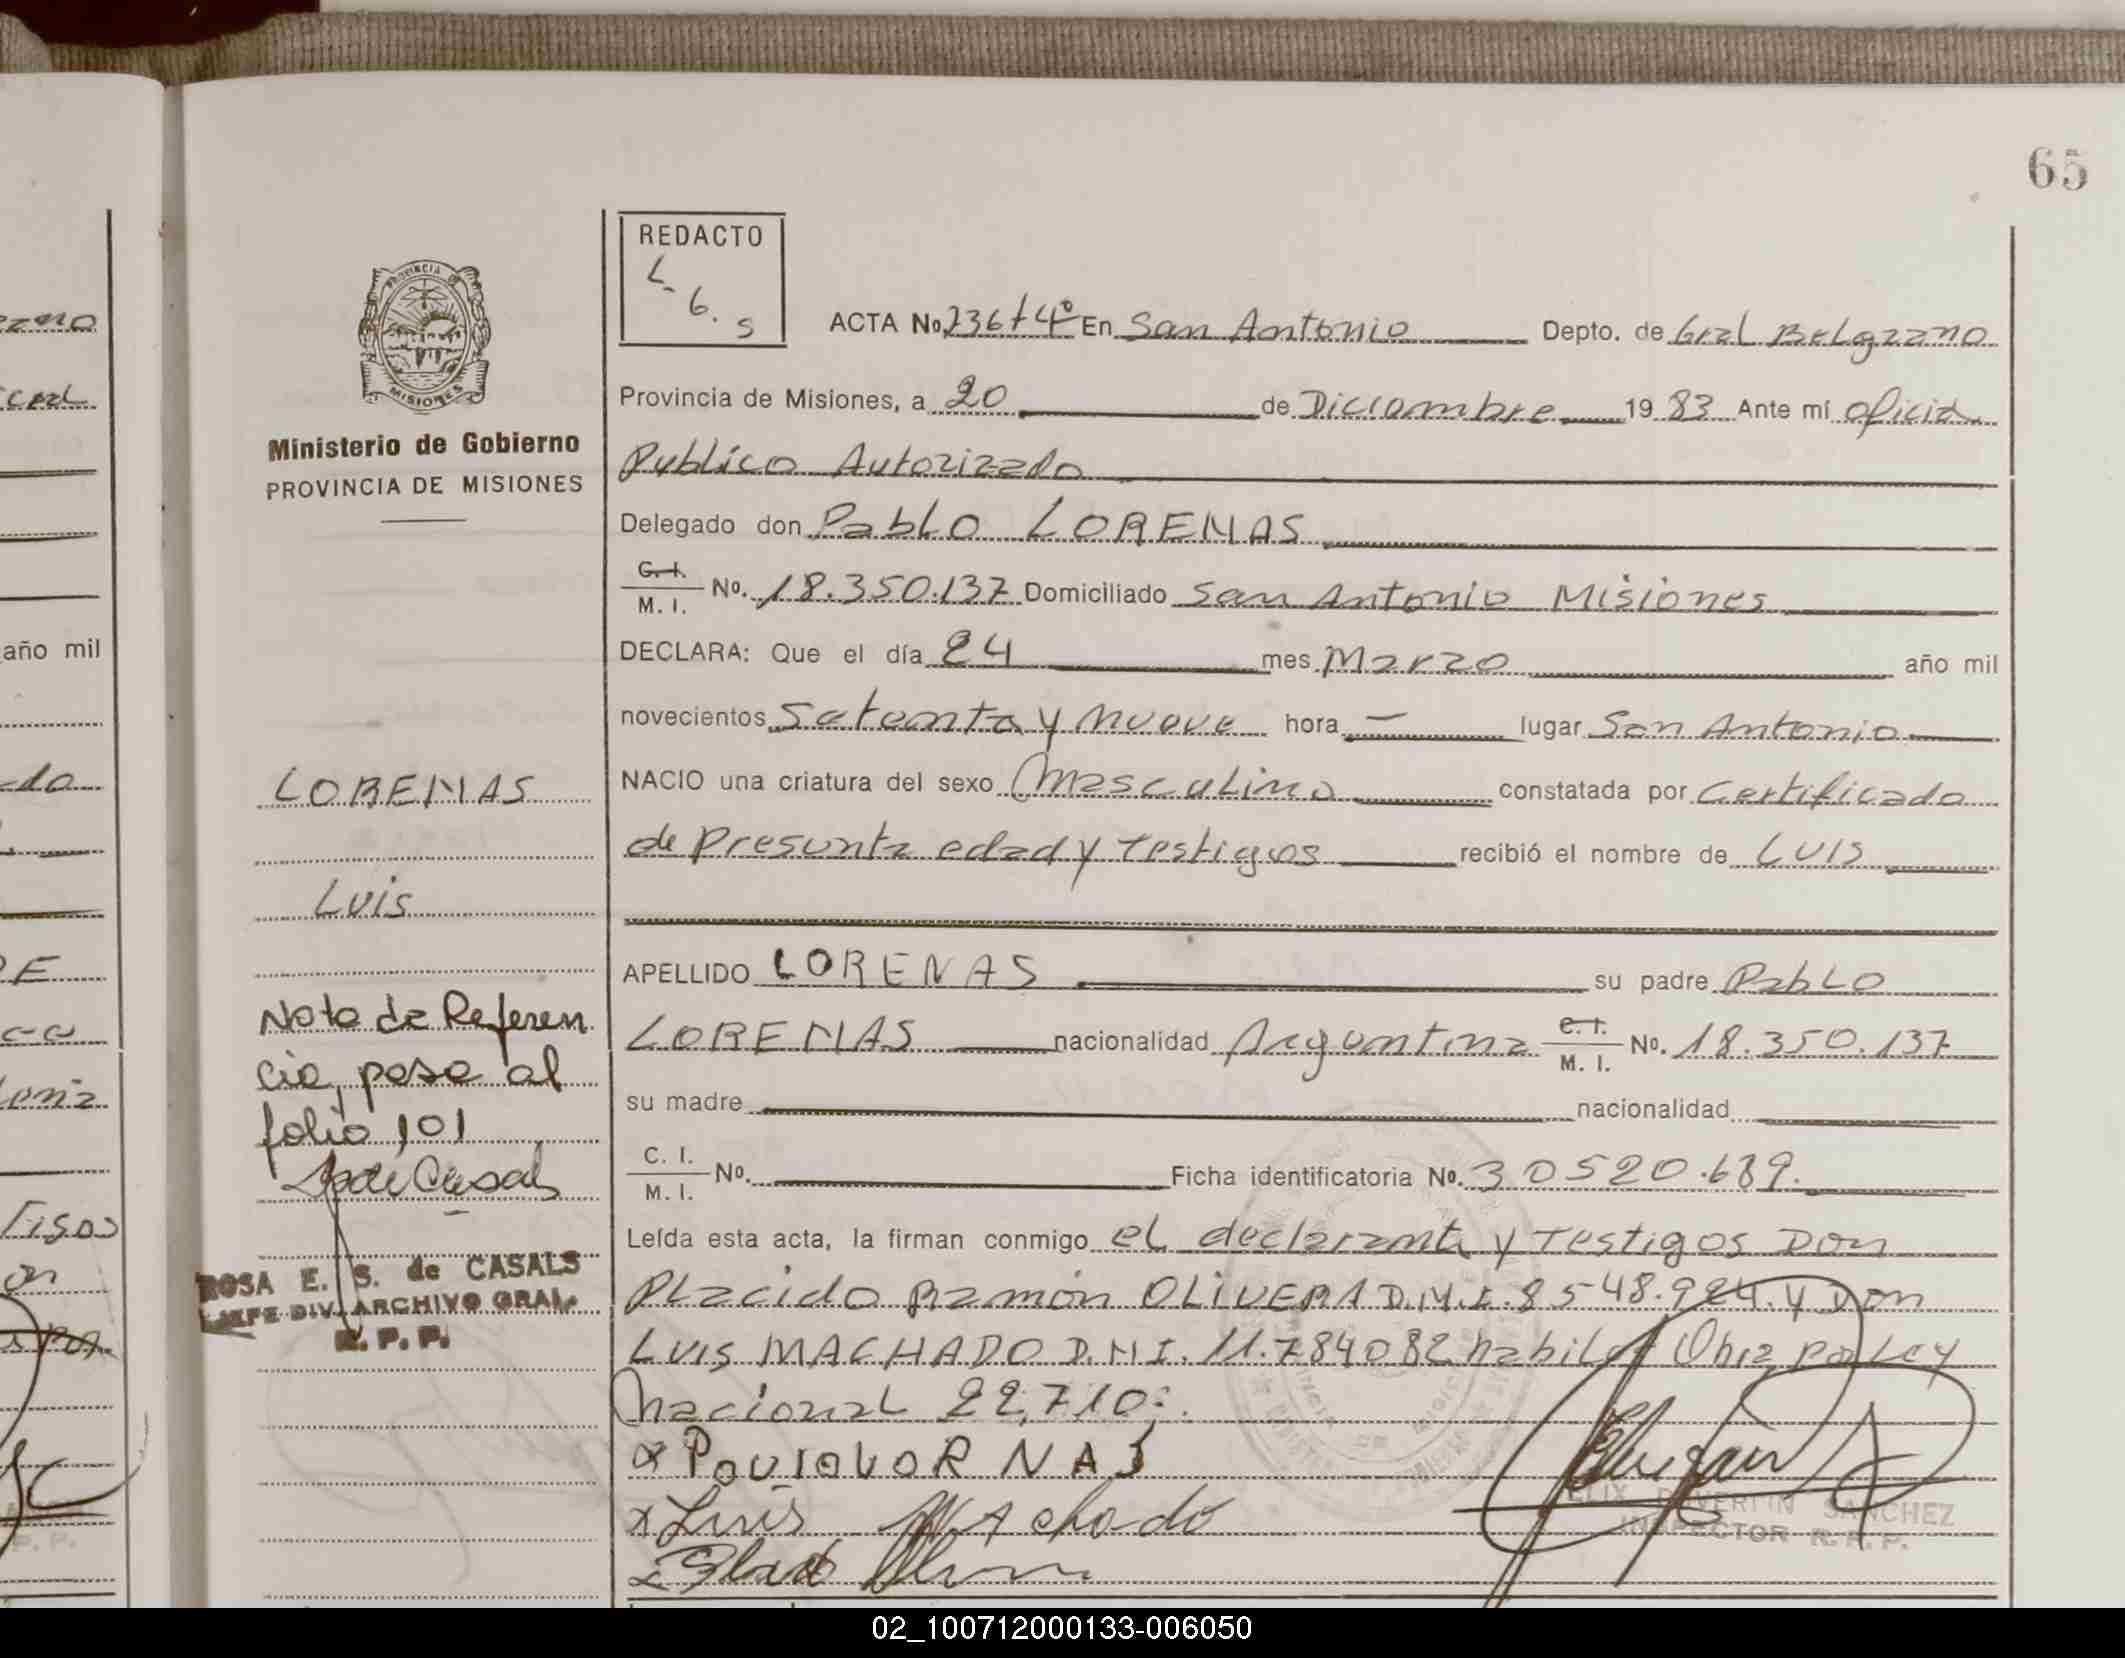 65
REDACTO
L. 6. S
ACTA No. 236 t 4º En San Antonio Depto. de Gral Belgrano
Provincia de Misiones, a 20 de Diciembre 19 83 Ante mí oficial
Publico Autorizado
PROVINCIA DE
MISIONES
Ministerio de Gobierno
PROVINCIA DE MISIONES
Delegado don Pablo LORENAS
C. I.
M. I. No. 18.350.137 Domiciliado San Antonio Misiones
DECLARA: Que el día 24 mes Marzo año mil
novecientos Setenta y nueve hora — lugar San Antonio
NACIO una criatura del sexo Masculino constatada por Certificado
de Presunta edad y Testigos recibió el nombre de LUIS
APELLIDO LORENAS su padre Pablo
LORENAS nacionalidad Argentina C. I.
M. I. No. 18.350.137
su madre nacionalidad
C. I.
M. I. No. Ficha identificatoria No. 30520.689.
Leída esta acta, la firman conmigo el declarante y Testigos Don
Placido Ramón OLIVERA D.M.I. 8548.924. y Don
LUIS MACHADO D.N.I. 11.784082 habiles Obra por Ley
Nacional 22.710:.
x Luis Machado
LORENAS
Luis
Nota de Referen
cia, pasa al
folio 101
ROSA E. S. de CASALS
JEFE DIV. ARCHIVO GRAL.
R. P. P.
SANCHEZ
INSPECTOR R. P. P.
año mil
02_100712000133-006050